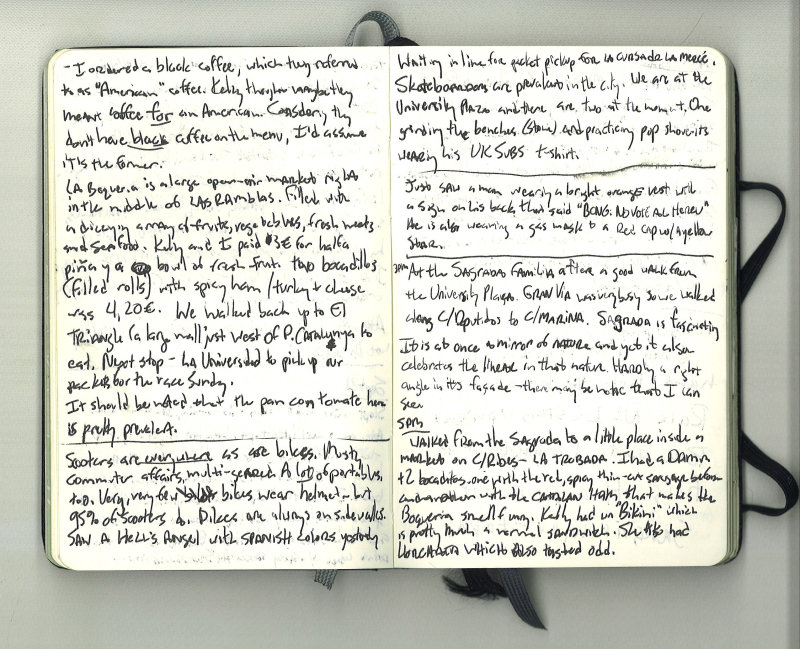 - I ordered a black coffee, which they referred
to as "American" coffee. Kelly thought maybe they
meant coffee for an American. Considering they
don't have black coffee on the menu, I'd assume
it's the former.
LA Boqueria is a large open-air market right
in the middle of LAS RAMBLAS. Filled with
a dizzying array of fruits, vegetables, fresh meats
and seafood. Kelly and I paid 3€ for half a
piña y a bowl of fresh fruit. Two bocadillos
(filled rolls) with spicy ham/turkey + cheese
was 4,20€. We walked back up to El
TRIANGLE (a large mall just west of P. Catalunya to
eat. Next stop - LA Universitad to pick up our
packets for the race Sunday.
It should be noted that the pan con tomate here
is pretty prevalent.
Scooters are everywhere as are bikes. Mostly
commuter affairs, multi-geared. A lot of portables,
too. Very, very few bikes wear helmet - but
95% of scooters do. Bikes are always on sidewalks.
SAW A Hell's Angel with SPANISH colors yesterday
Waiting in line for packet pickup for LA CURSA DE LA MERCÈ.
Skateboarders are prevalent in the city. We are at the
University Plaza and there are two at the moment. One
grinding the benches (stone) and practicing pop shove-its
wearing his UK SUBS t-shirt.
Just saw a man wearing a bright orange vest with
a sign on his back that said
He is also wearing a gas mask to a Red cap w/ a yellow
Star.
3pm At the SAGRADA FAMILIA after a good walk from
the University Plaza. GRAN VIA was very busy so we walked
along C/Diputidos to C/MARINA. SAGRADA is fascinating
It is at once a mirror of nature and yet it also
celebrates the linear in that nature. Hardly a right
angle in its façade - there may be not one that I can
see
5pm
Walked from the Sagrada to a little place inside a
market on C/Ribes - LA TROBADA. I had a Damm
+ 2 bocaditos. one with the red, spicy thin-cut sausage before
and another with the CATALAN that makes the
Boqueria smell funny. Kelly had un "Bikini" which
is pretty much a normal sandwich. She also had
HORCHATA which also tasted odd.